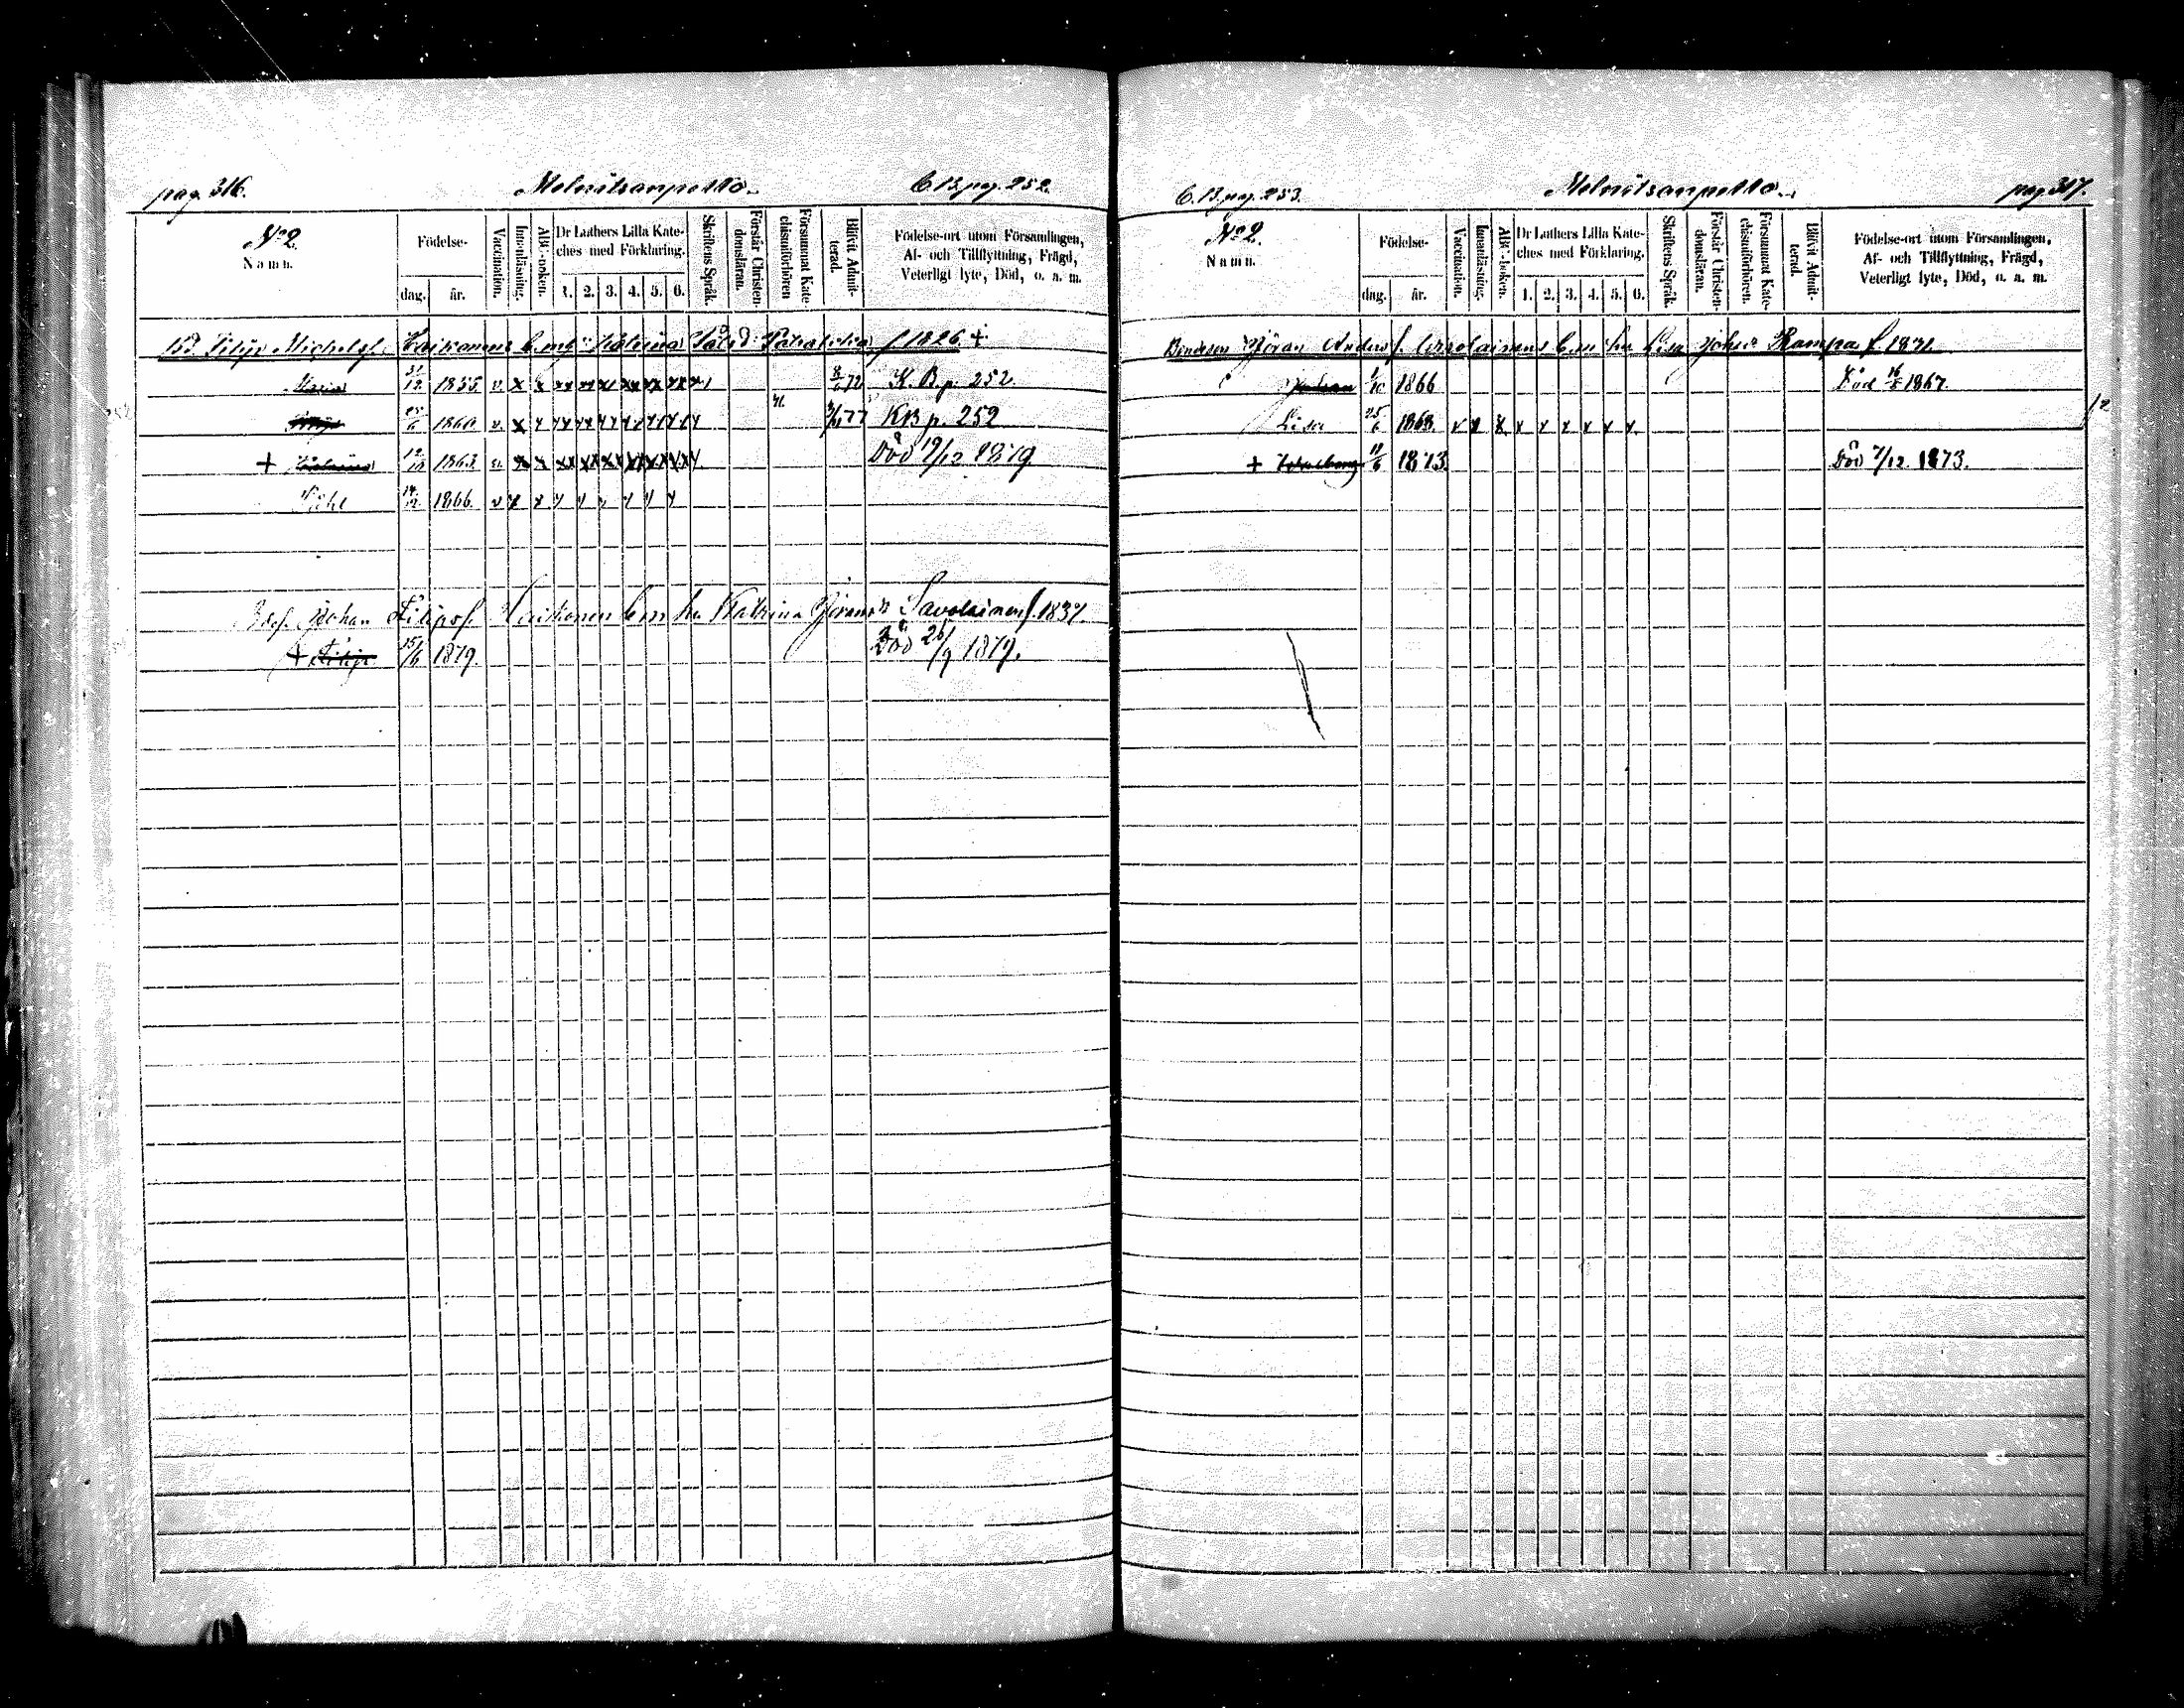 pag. 316. Melnitsanpelto. C. B. pag. 252.
No 2.
Namn.
Födelse-
dag. år.
Vaccination.
Innanläsning.
ABC-boken.
Dr Luthers Lilla Kateches med Förklaring.
1. 2. 3. 4. 5. 6.
Skriftens Språk.
Förstår Christendomsläran.
Försummat Katechismiförhören
Blifvit Admitterad.
Födelse-ort utom Församlingen,
Af- och Tillflyttning, Frägd,
Veterligt lyte, Död, o. a. m.
Bd. Filip Michelsf. barn Katrina f 1826 +
Maria 31/12 1855 v x x xx xx xx xx xx xx 8/6 72 K. B. p. 252
Filip 25/6 1860 v x x 77 KB p. 252
+ Katrina 12/10 1863 v x x xx xx xx xx xx xx Död 19/12 1879
Påhl 14/12 1866. v x x x x x x x x
Johan Filipsf. barn Katrina Göransd. Savolainen f. 1837.
+ Filip 15/6 1879. Död 26/9 1879.
C. B. pag. 253. Melnitsanpelto. pag 317.
No 2.
Namn.
Födelse-
dag. år.
Vaccination.
Innanläsning.
ABC-boken.
Dr Luthers Lilla Kateches med Förklaring.
1. 2. 3. 4. 5. 6.
Skriftens Språk.
Förstår Christendomsläran.
Försummat Katechismiförhören.
Blifvit Admitterad.
Födelse-ort utom Församlingen,
Af- och Tillflyttning, Frägd,
Veterligt lyte, Död, o. a. m.
Bondeson Göran Andersf. barn hu Lisa Johsd. Rampa f. 1831
1/10 1866 Död 16/5 1867.
Lisa 25/6 1868. v x x x x x x x x
+ 11/6 1873 Död 7/12 1873.